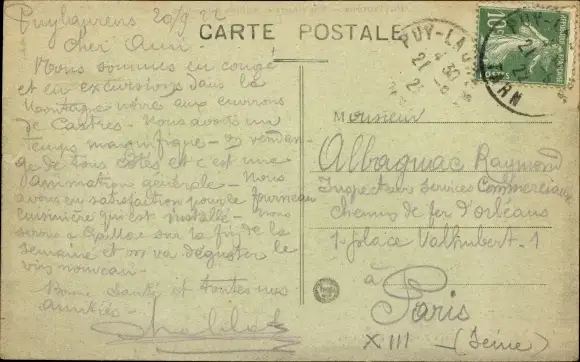 Puylaurens 20/9 22
CARTE POSTALE
Cher Ami
Nous sommes en congé
et en excursions dans la
Montagne noire aux environs
de Castres. Nous avons un
temps magnifique - on vendan-
ge de tous côtés et c'est une
animation générale - Nous
avons eu satisfaction pour le fourneau
cuisinière qui est installé - Nous
serons à Gaillac sur la fin de la
semaine et on va déguster le
vin nouveau -
Bonne Santé et toutes nos
amitiés -
PUY-LAURENS
TARN
10c
Monsieur
Albagnac Raymond
Inspecteur Services Commerciaux
chemin de fer d'orléans
1 - place Valhubert - 1
à
Paris
XIII - (Seine)